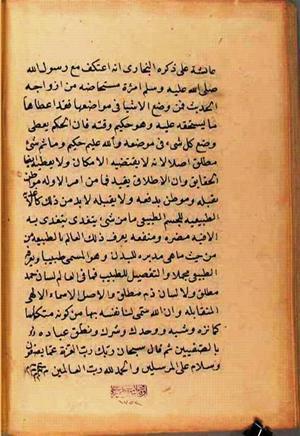 عائشة على ذكره البخارى انه اعتكف مع رسول الله
صلى الله عليه وسلم امرأة مستحاضه من ازواجه
الحديث فمن وضع الاشيا فى مواضعها فقد اعطاها
ما يستحقه عليه وهو حكيم وقته فان الحكم يعطى
وضع كل شىء فى موضعه والله عليم حكيم وما ثم شىء
مطلق اصلا لانه لا يقتضيه الامكان ولا يعطيه
الحقايق وان الاطلاق يقيد فما من امر الا وله موطن
يقبله وموطن يدفعه ولا يقبله لا بد من ذلك كالاغذية
الطبيعيه للجسم الطبيعى ما من شىء يتغذى به الا
فيه مضره ومنفعه يعرف ذلك العالم بالطبيعه من
من حيث ما هى مدبره للبدن وهو المسمى طبيبا
الطبيعى مجملا والتفصيل للطبيب فما فى العالم لسان حمد
مطلق ولا لسان ذم مطلق والاصل الاسماء الالهى
المتقابله وان الله سمى لنا نفسه بها من كونه متكلما
كما نزه وشبه ووحد وشرك ونطق عباده
بالصفتين ثم قال سبحان ربك رب العزة عما يصفون
وسلام على المرسلين والحمد لله رب العالمين